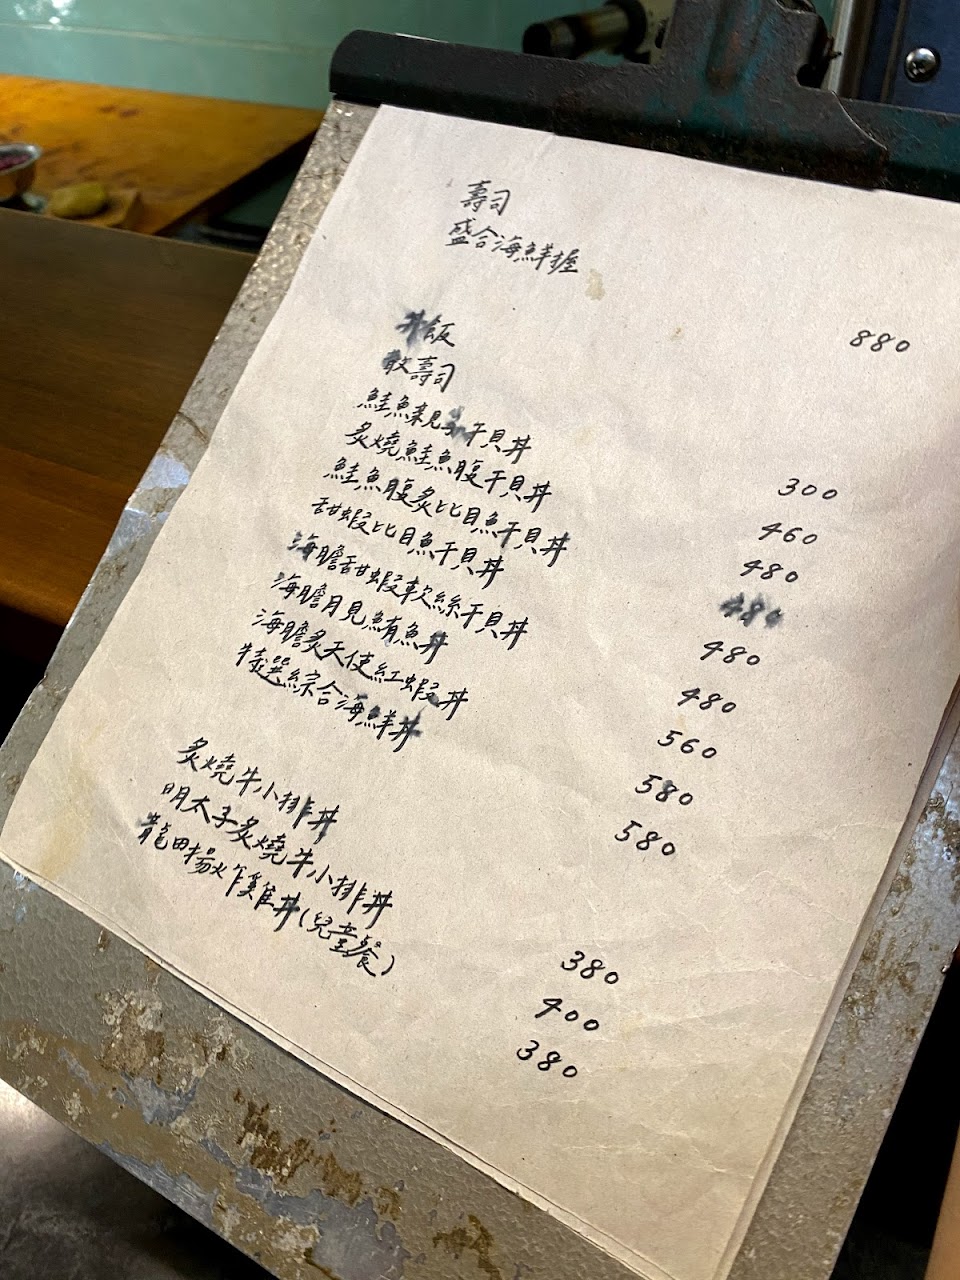 壽司
盛合海鮮握 880
丼飯
散壽司 300
鮭魚親子干貝丼 460
炙燒鮭魚腹干貝丼 480
鮭魚腹炙比目魚干貝丼 480
甜蝦比目魚干貝丼 480
海膽甜蝦軟絲干貝丼 480
海膽月見鮪魚丼 560
海膽炙天使紅蝦丼 580
特選綜合海鮮丼 580
炙燒牛小排丼 380
明太子炙燒牛小排丼 400
龍田揚炸雞丼(兒童餐) 380